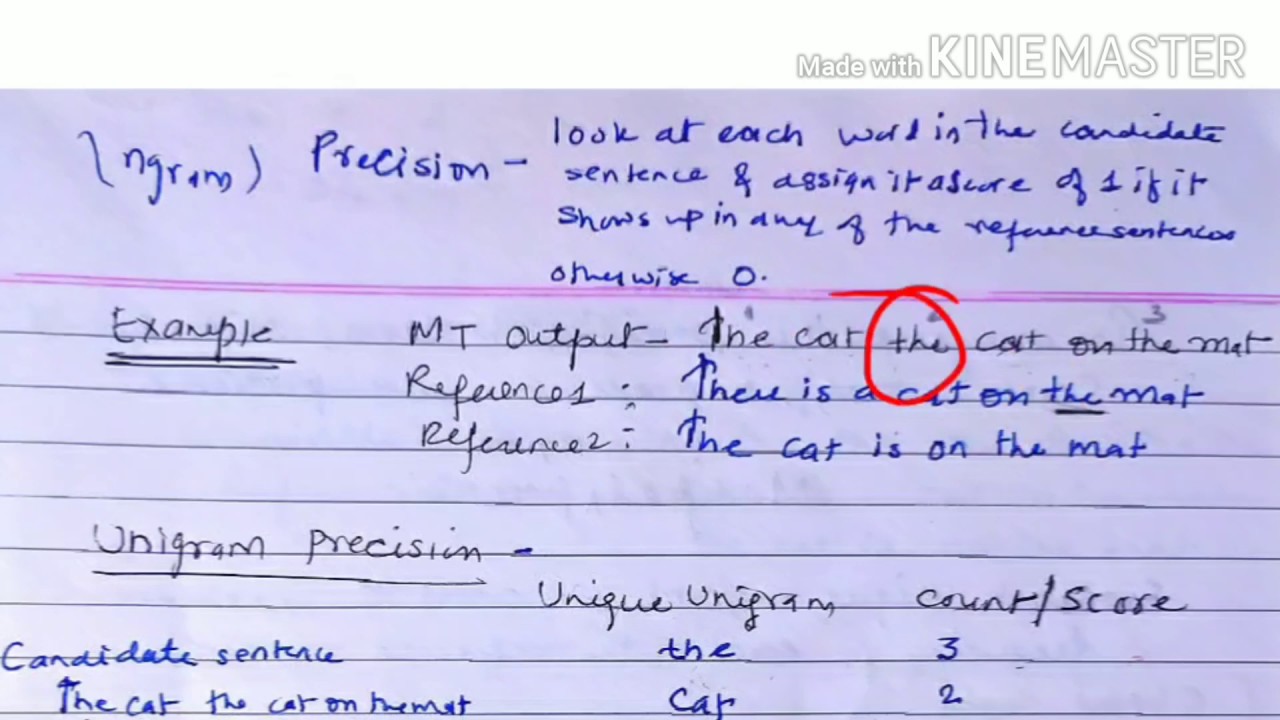 Made with KINEMASTER
(ngram) Precision - look at each word in the candidate
sentence & assign it a score of 1 if it
shows up in any of the reference sentences
otherwise 0.
Example MT output - The cat the cat on the mat
3
Reference1 : There is a cat on the mat
Reference2 : The cat is on the mat
Unigram precision -
Unique Unigram count/Score
Candidate sentence the 3
The cat the cat on the mat Cat 2